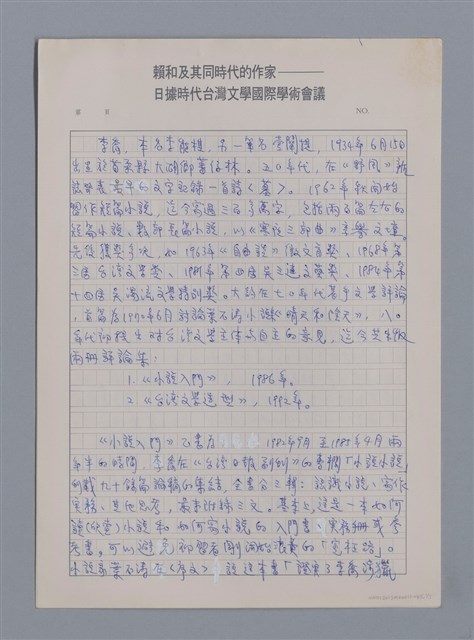 賴和及其同時代的作家———
日據時代台灣文學國際學術會議
第 頁 NO.
李喬,本名李能棋,另一筆名壹闡提,1934年6月15日
出生於苗栗縣大湖鄉蕃仔林。五〇年代,在《野風》
發表最早的文字記錄一首詩《墓》。1962年秋開始
習作短篇小說,迄今寫過三百多萬字,包括兩百篇左右的
短篇小說、數部長篇小說,以《寒夜三部曲》享譽文壇。
先後獲獎多次,如1963年《自由談》徵文首獎、1968年第
三屆台灣文學獎、1981年第四屆吳三連文藝獎、1984年第
十四屆吳濁流文學特別獎。大約在七〇年代著手文學評論,
首篇為1970年6月討論葉石濤小說《晴天和陰天》,八〇
年代初提出對台灣文學主体的自主的意見,迄今共出版
兩冊評論集:
1.《小說入門》,1986年。
2.《台灣文學造型》,1992年。
《小說入門》乙書為 1982年9月至1985年4月兩
年半的時間,李喬在《台灣日報副刊》的專欄「小說小說」
刊載九十餘篇 的集結,全書分三輯:認識小說、寫作
實務、其他思考,最末附錄三文。基本上,這是一本如何
讀(欣賞)小說和如何寫小說的入門書、實務冊或參
考書,可以避免初習者剛開始浪費的「冤枉路」。
小說家葉石濤在《序文》說這本書「證實了李喬涉獵